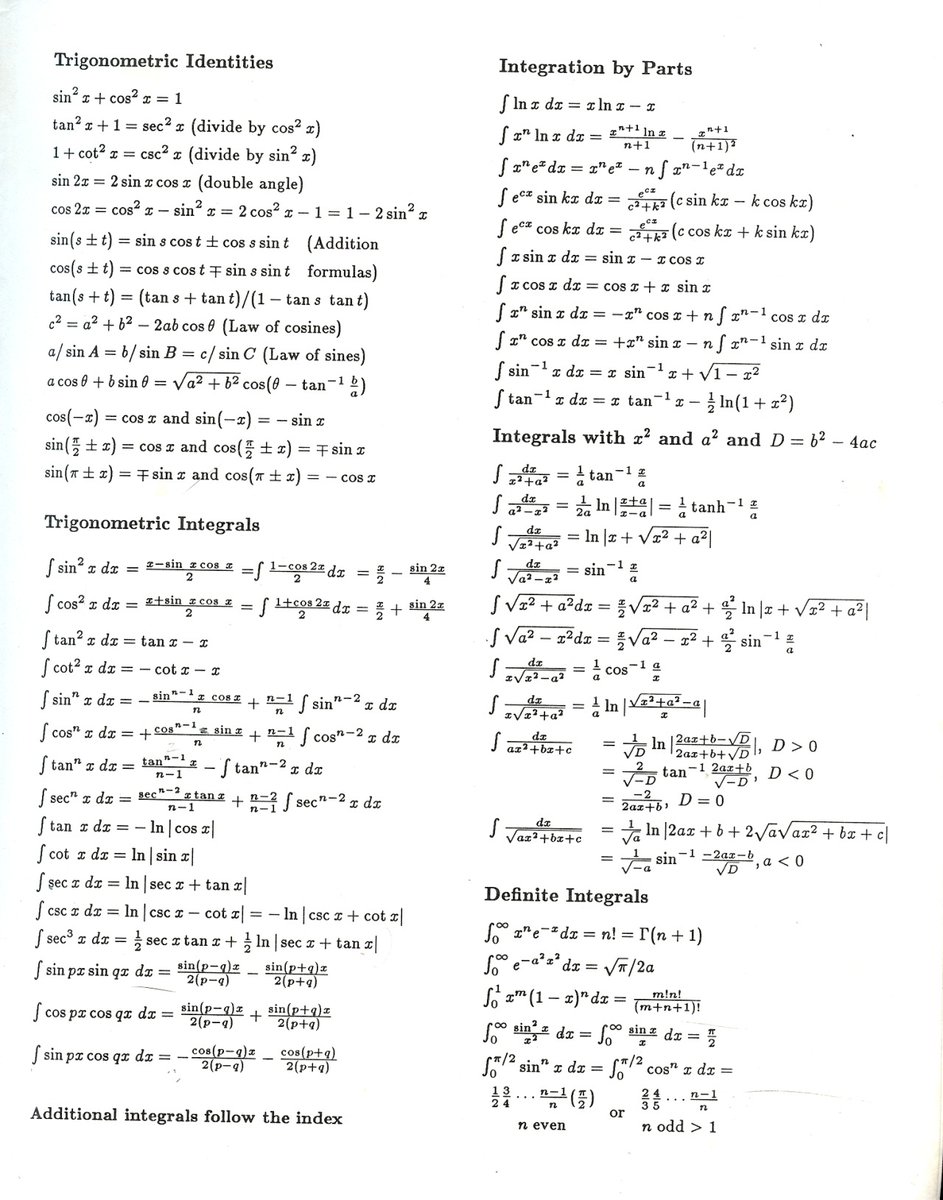 Trigonometric Identities
sin² x + cos² x = 1
tan² x + 1 = sec² x (divide by cos² x)
1 + cot² x = csc² x (divide by sin² x)
sin 2x = 2 sin x cos x (double angle)
cos 2x = cos² x − sin² x = 2 cos² x − 1 = 1 − 2 sin² x
sin(s ± t) = sin s cos t ± cos s sin t (Addition
cos(s ± t) = cos s cos t ∓ sin s sin t formulas)
tan(s + t) = (tan s + tan t)/(1 − tan s tan t)
c² = a² + b² − 2ab cos θ (Law of cosines)
a/ sin A = b/ sin B = c/ sin C (Law of sines)
a cos θ + b sin θ = √(a² + b²) cos(θ − tan⁻¹ b/a)
cos(−x) = cos x and sin(−x) = − sin x
sin(π/2 ± x) = cos x and cos(π/2 ± x) = ∓ sin x
sin(π ± x) = ∓ sin x and cos(π ± x) = − cos x
Trigonometric Integrals
∫ sin² x dx = (x−sin x cos x)/2 = ∫ (1−cos 2x)/2 dx = x/2 − (sin 2x)/4
∫ cos² x dx = (x+sin x cos x)/2 = ∫ (1+cos 2x)/2 dx = x/2 + (sin 2x)/4
∫ tan² x dx = tan x − x
∫ cot² x dx = − cot x − x
∫ sinⁿ x dx = − (sinⁿ⁻¹ x cos x)/n + (n−1)/n ∫ sinⁿ⁻² x dx
∫ cosⁿ x dx = + (cosⁿ⁻¹ x sin x)/n + (n−1)/n ∫ cosⁿ⁻² x dx
∫ tanⁿ x dx = (tanⁿ⁻¹ x)/(n−1) − ∫ tanⁿ⁻² x dx
∫ secⁿ x dx = (secⁿ⁻² x tan x)/(n−1) + (n−2)/(n−1) ∫ secⁿ⁻² x dx
∫ tan x dx = − ln | cos x|
∫ cot x dx = ln | sin x|
∫ sec x dx = ln | sec x + tan x|
∫ csc x dx = ln | csc x − cot x| = − ln | csc x + cot x|
∫ sec³ x dx = 1/2 sec x tan x + 1/2 ln | sec x + tan x|
∫ sin px sin qx dx = sin(p−q)x/2(p−q) − sin(p+q)x/2(p+q)
∫ cos px cos qx dx = sin(p−q)x/2(p−q) + sin(p+q)x/2(p+q)
∫ sin px cos qx dx = − cos(p−q)x/2(p−q) − cos(p+q)/2(p+q)
Additional integrals follow the index
Integration by Parts
∫ ln x dx = x ln x − x
∫ xⁿ ln x dx = (xⁿ⁺¹ ln x)/(n+1) − xⁿ⁺¹/(n+1)²
∫ xⁿeˣdx = xⁿeˣ − n ∫ xⁿ⁻¹eˣdx
∫ e^(cx) sin kx dx = e^(cx)/(c²+k²) (c sin kx − k cos kx)
∫ e^(cx) cos kx dx = e^(cx)/(c²+k²) (c cos kx + k sin kx)
∫ x sin x dx = sin x − x cos x
∫ x cos x dx = cos x + x sin x
∫ xⁿ sin x dx = −xⁿ cos x + n ∫ xⁿ⁻¹ cos x dx
∫ xⁿ cos x dx = +xⁿ sin x − n ∫ xⁿ⁻¹ sin x dx
∫ sin⁻¹ x dx = x sin⁻¹ x + √(1 − x²)
∫ tan⁻¹ x dx = x tan⁻¹ x − 1/2 ln(1 + x²)
Integrals with x² and a² and D = b² − 4ac
∫ dx/(x²+a²) = 1/a tan⁻¹ x/a
∫ dx/(a²−x²) = 1/2a ln |(x+a)/(x−a)| = 1/a tanh⁻¹ x/a
∫ dx/√(x²+a²) = ln |x + √(x² + a²)|
∫ dx/√(a²−x²) = sin⁻¹ x/a
∫ √(x² + a²)dx = x/2 √(x² + a²) + a²/2 ln |x + √(x² + a²)|
∫ √(a² − x²)dx = x/2 √(a² − x²) + a²/2 sin⁻¹ x/a
∫ dx/(x√(x²−a²)) = 1/a cos⁻¹ a/x
∫ dx/(x√(x²+a²)) = 1/a ln |(√(x²+a²)−a)/x|
∫ dx/(ax²+bx+c) = 1/√D ln |(2ax+b−√D)/(2ax+b+√D)|, D > 0
= 2/√(−D) tan⁻¹ (2ax+b)/√(−D), D < 0
= −2/(2ax+b), D = 0
∫ dx/√(ax²+bx+c) = 1/√a ln |2ax + b + 2√a√(ax² + bx + c)|
= 1/√(−a) sin⁻¹ (−2ax−b)/√D, a < 0
Definite Integrals
∫₀^∞ xⁿe⁻ˣdx = n! = Γ(n + 1)
∫₀^∞ e^(−a²x²)dx = √π/2a
∫₀¹ xᵐ(1 − x)ⁿdx = m!n!/(m+n+1)!
∫₀^∞ (sin² x)/x² dx = ∫₀^∞ (sin x)/x dx = π/2
∫₀^(π/2) sinⁿ x dx = ∫₀^(π/2) cosⁿ x dx =
1/2 3/4 ... (n−1)/n (π/2) or 2/3 4/5 ... (n−1)/n
n even n odd > 1